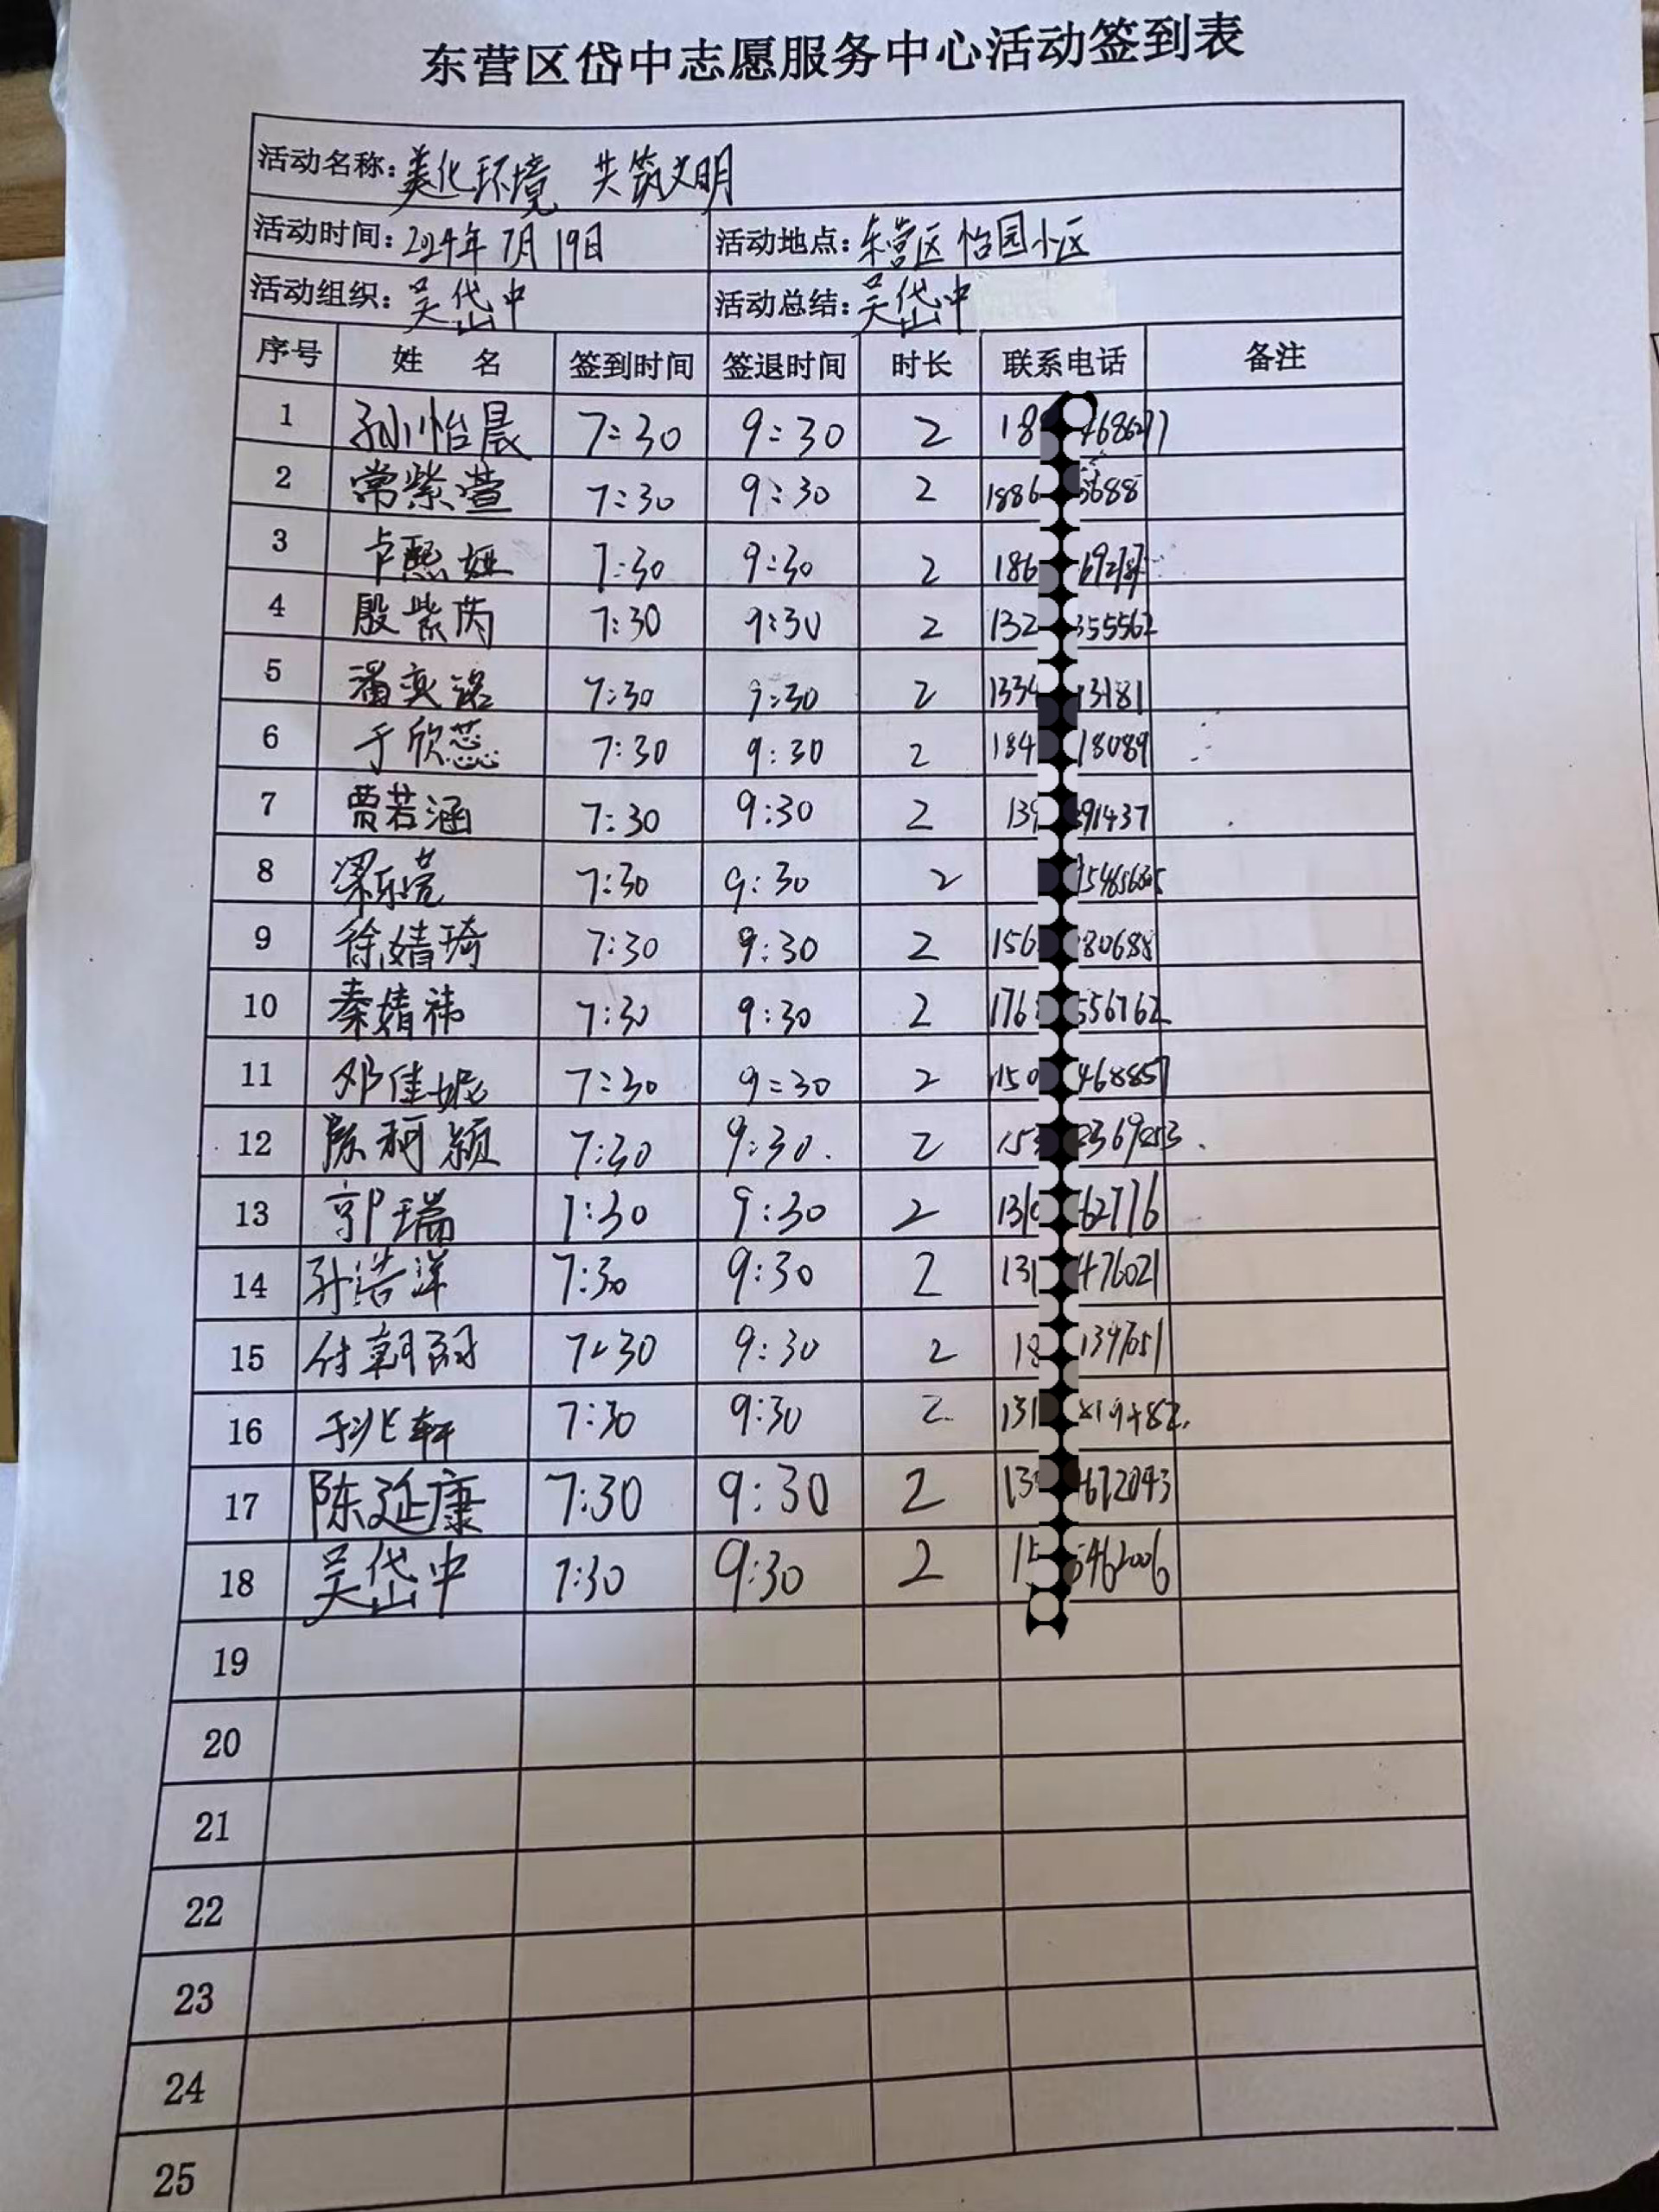 东营区岱中志愿服务中心活动签到表
活动名称:美化环境 共筑文明
活动时间:2024年7月19日 活动地点:东营区怡园小区
活动组织:吴岱中 活动总结:吴岱中
序号 姓 名 签到时间 签退时间 时长 联系电话 备注
1 孙怡晨 7:30 9:30 2
2 常紫萱 7:30 9:30 2 1886 5688
3 卢熙娅 7:30 9:30 2 186
4 殷紫芮 7:30 9:30 2 132 355562
5 潘奕诺 7:30 9:30 2 1334 3181
6 于欣蕊 7:30 9:30 2 184 18089
7 贾若涵 7:30 9:30 2 139 91437
8 梁乐莹 7:30 9:30 2
9 徐婧琦 7:30 9:30 2 156 80688
10 秦婧祎 7:30 9:30 2 176 556762
11 邓佳妮 7:30 9:30 2 150 468857
12 陈柯颖 7:30 9:30 2 153
13 郭瑞 7:30 9:30 2 1310 62776
14 孙浩洋 7:30 9:30 2 131 476021
15 付朝 7:30 9:30 2 18
16 轩 7:30 9:30 2 131
17 陈延康 7:30 9:30 2 13 672043
18 吴岱中 7:30 9:30 2 15 5462006
19
20
21
22
23
24
25